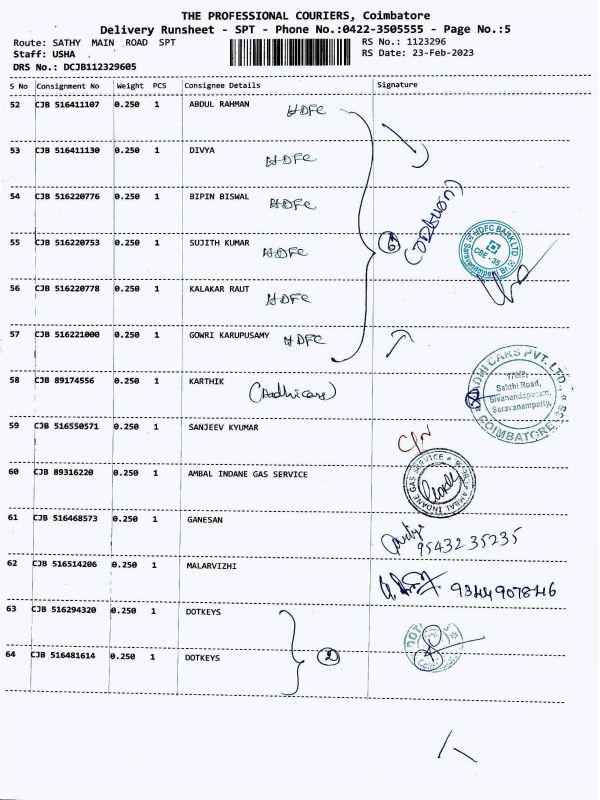 THE PROFESSIONAL COURIERS, Coimbatore
Delivery Runsheet - SPT - Phone No.:0422-3505555 - Page No.:5
Route: SATHY MAIN ROAD SPT RS No.: 1123296
Staff: USHA RS Date: 23-Feb-2023
DRS No.: DCJB112329605
S No Consignment No Weight PCS Consignee Details Signature
52 CJB 516411107 0.250 1 ABDUL RAHMAN HDFC
53 CJB 516411130 0.250 1 DIVYA HDFC
54 CJB 516220776 0.250 1 BIPIN BISWAL HDFC
55 CJB 516220753 0.250 1 SUJITH KUMAR HDFC 6
HDFC BANK LTD
CBE - 35
Saravanampatti Br.
56 CJB 516220778 0.250 1 KALAKAR RAUT HDFC
57 CJB 516221000 0.250 1 GOWRI KARUPUSAMY HDFC
58 CJB 89174556 0.250 1 KARTHIK (Aadhi cars)
AADHI CARS PVT. LTD.
Sakthi Road,
Sivanandapuram,
Saravanampatty,
COIMBATORE-35
59 CJB 516550571 0.250 1 SANJEEV KYUMAR
60 CJB 89316220 0.250 1 AMBAL INDANE GAS SERVICE
AMBAL INDANE GAS SERVICE
61 CJB 516468573 0.250 1 GANESAN
9543235235
62 CJB 516514206 0.250 1 MALARVIZHI 9344907846
63 CJB 516294320 0.250 1 DOTKEYS
2
64 CJB 516481614 0.250 1 DOTKEYS